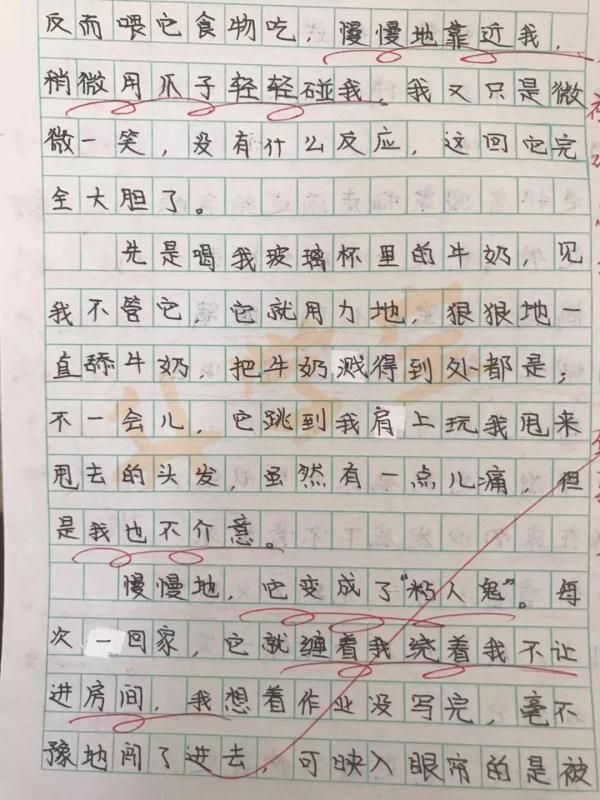 反而喂它食物吃，慢慢地靠近我，
稍微用爪子轻轻碰我，我又只是微
微一笑，没有什么反应，这回它完
全大胆了。
先是喝我玻璃杯里的牛奶，见
我不管它，它就用力地，狠狠地一
直舔牛奶，把牛奶溅得到处都是；
不一会儿，它跳到我肩上玩我甩来
甩去的头发，虽然有一点儿痛，但
是我也不介意。
慢慢地，它变成了“粘人鬼”。每
次一回家，它就缠着我绕着我不让
进房间，我想着作业没写完，毫不
豫地闯了进去，可映入眼帘的是被